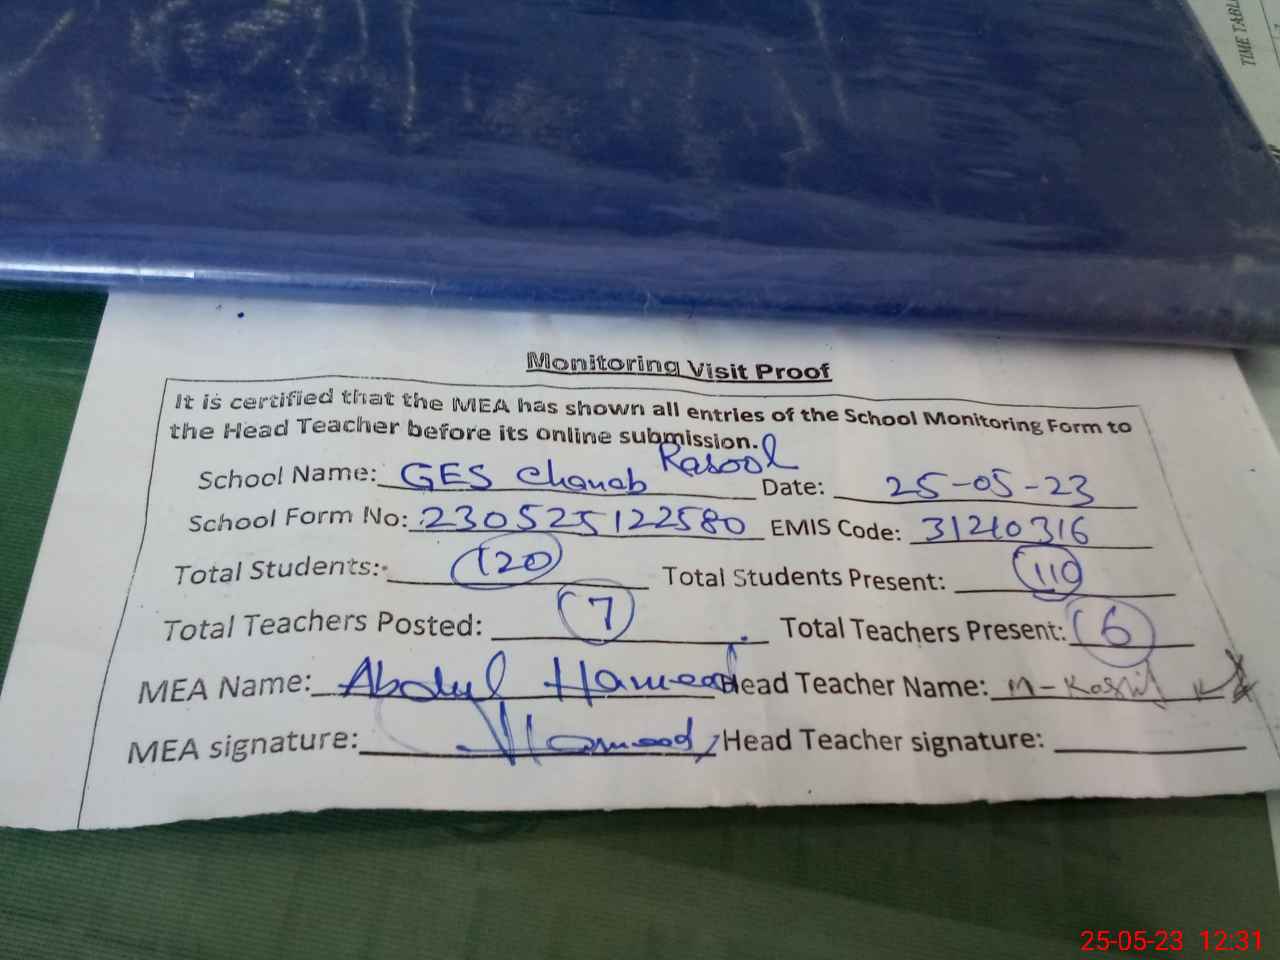 TIME TABL
Monitoring Visit Proof
It is certified that the MEA has shown all entries of the School Monitoring Form to
the Head Teacher before its online submission.
School Name: GES Chanab Rasool Date: 25-05-23
School Form No: 230525122580 EMIS Code: 31240316
Total Students: 120 Total Students Present: 110
Total Teachers Posted: 7 Total Teachers Present: 6
MEA Name: Abdul Hameed Head Teacher Name: M-Kashif
MEA signature: Hameed Head Teacher signature:
25-05-23 12:31